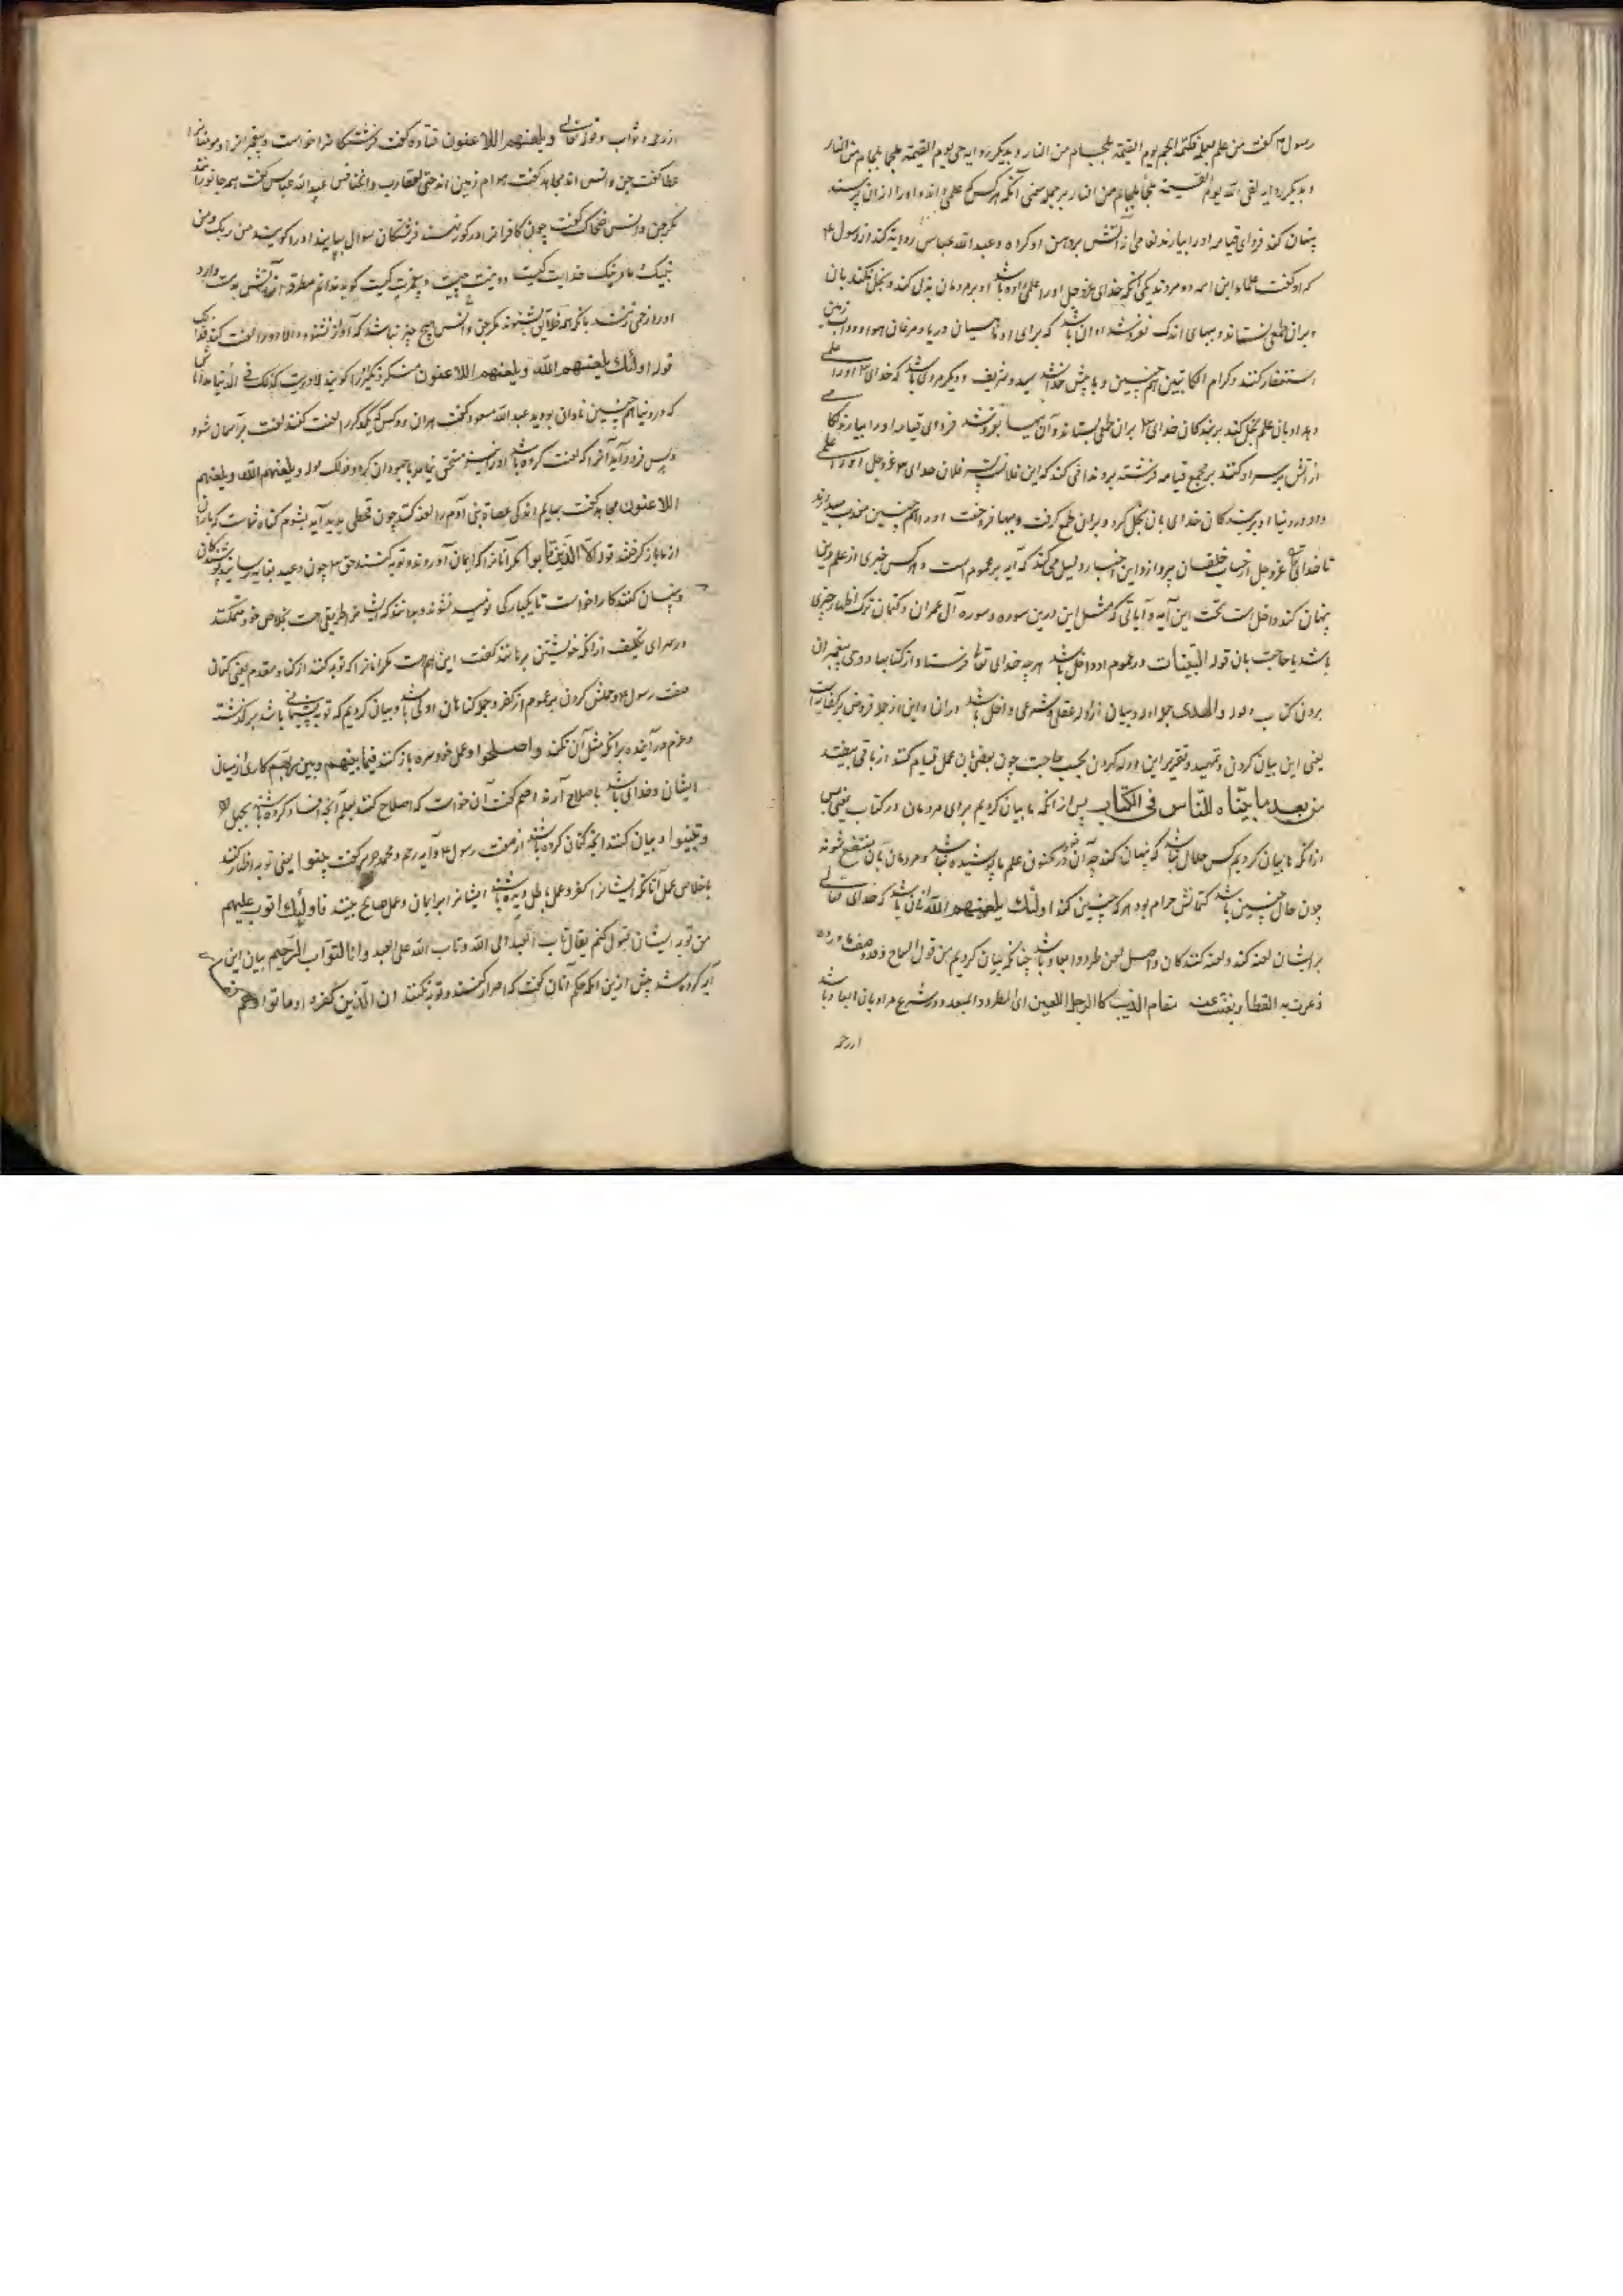 رسول ۴ کفت من علم علما فکتمه الجم یوم القیمة بلجام من النار و بدیکر روایه جی یوم القیمة ملجما بلجام من النار
و بدیکر روایه لقی الله یوم القیمة ملجما بلجام من النار بر جمله معنی آنکه هر کس که علمی داند و اورا ازان پرسند
پنهان کند فردای قیامه اورا بیارند لغامی از آتش بر دهن او کرده و عبد الله عباس روایة کند از رسول ۴
که او کفت علماء این امه دو مردند یکی آنکه خدای عزوجل اورا علمی داده باشد او بر مردمان بذل کند و بخل نکند بان
و بران طمعی نستاند و ببهای اندک نفروشد او ان باشد که برای او ماهیان دریا و مرغان هوا و دواب زمین
استغفار کنند و کرام الکاتبین همچنین و با پیش خدا شد سید و شریف و دیکر مردی باشد که خدای اورا علمی
دهد او بان علم بخل کند بر بندکان خدای بران طمعی بستاند و آن ببها بفروشد فردای قیامه اورا بیارند لکامی
از آتش بر سر او کنند بر مجمع قیامه فرشته برو ندا می کند که این فلانست پسر فلان خدای عزوجل اورا علمی
داد در دنیا او بر بندکان خدای بان بخل کرد و بران طمع کرفت و ببها فروخت اورا همچنین معذب میدارند
تا خدای عزوجل از حساب خلقان بپردازد و این اخبار دلیل می کند که آیه بر عموم است و هر کس خبری از علم دین
پنهان کند داخل است تحت این آیه و آیاتی که مثل این درین سوره و سوره آل عمران و کتمان ترک اظهار چیزی
باشد با حاجت بان قوله البینات در عموم او داخل باشد هر چه خدای تعالی فرستاد از کتابها و وحی پیغمبران
بدون کتاب والهدی جمله ادله و بیان از ادله عقلی و شرعی داخل باشد در ان و این از جمله فروض بر کفایت است
یعنی این بیان کردن و تمهید و تقریر این ادله کردن بحسب حاجت چون بعضی بان عمل قیام کنند از باقی بیفتد
من بعد ما بیناه للناس فی الکتاب پس از انکه ما بیان کردیم برای مردمان در کتاب یعنی پس
ازانکه ما بیان کردیم کس حلال نباشد که پنهان کند چه آن در مکنون علم ما پوشیده نباشد و مردمان بان منتفع شوند
چون حال چنین باشد کتمانش حرام بود هر که چنین کند اولئک یلعنهم الله آنان باشند که خدای تعالی
بر ایشان لعنه کند و لعنه کنندکان و اصل لعن طرد و ابعاد باشد چنانکه بیان کردیم من قول الشماخ
ذعرت به القطا و نفیت عنه مقام الذیب کالرجل اللعین ای المطرود المبعد و در شرع مراد بان ابعاد باشد
از رحمه
از رحمه و ثواب و قوله تعالی ویلعنهم اللاعنون قتاده کفت فرشتکانرا خواست و پیغمبرانرا و مومنانرا
عطا کفت جن و انس اند مجاهد کفت هوام زمین اند حتی العقارب و الخنافس عبد الله عباس کفت همه جانورانند
مکر جن و انس ضحاک کفت چون کافرانرا در کور نهند فرشتکان سوال بیایند اورا کویند من ربک و من
نبیک و ما دینک خدایت کیست و دینت چیست و پیغمبرت کیست کوید ندانم مطرقه از آتش بدست دارد
اورا زخمی زنند بانکی همه خلایق بشنوند مکر جن و انس هیچ چیز نباشد که آواز نشنود و الا اورا لعنت کند فذلک
قوله اولئک یلعنهم الله ویلعنهم اللاعنون منکر و نکیر اورا کویند لا دریت کذلک فی الدنیا
که در دنیا همچنین نادان بودید عبد الله مسعود کفت هر ان دو کس که یکدیکر را لعنت کنند لعنت بر آسمان شود
و پس فرود آید آنرا که لعنت کرده باشد اورا نیز مستحق نیابد با جهودان کردد فذلک قوله ویلعنهم الله ویلعنهم
اللاعنون مجاهد کفت بهایم اند که عصاة بنی آدم را لعنه کنند چون قحطی پدید آید بشوم کناه شماست که باران
از ما باز کرفتند قوله الا الذین تابوا مکر آنانرا که ایمان آوردند و توبه کنند حق چون وعید بغایه رسانید پوشندکان
و پنهان کنندکانرا خواست تا یکبارکی نومید نشوند و بدانند که ایشانرا طریقی هست بخلاص خود متمکنند
در سرای تکلیف ازانکه خویشتن برهانند کفت این هم است مکر انانرا که توبه کنند از کناه مقدم یعنی کتمان
صفت رسول ۴ و حملش کردن بر عموم از کفر و جمله کناهان اولی باشد و بیان کردیم که توبه پشیمانی باشد بر کذشته
و عزم در آینده برانکه مثل آن نکند واصلحوا و عمل خود سره باز کنند فیما بینهم و بین ربهم کاری از میان
ایشان و خدای باشد باصلاح آرند اصم کفت آن خواست که اصلاح کنند بعلم آنچه افساد کرده باشند بجهل
وبینوا و بیان کنند انچه کتمان کرده باشند از صفت رسول ۴ و آیه رجم و محمد جریر کفت بینوا یعنی توبه اظهار کنند
باخلاص عمل آنانکه ایشانرا بر کفر و عمل باطل دیده باشند ایشانرا بر ایمان و عمل صالح بینند فاولئک اتوب علیهم
من توبه ایشان قبول کنم یقال تاب العبد الی الله و تاب الله علی العبد وانا التواب الرحیم بیان این
آیه کرده شد پیش ازین انکه حکم آنان کفت که اصرار کنند و توبه نکنند ان الذین کفروا وماتوا وهم